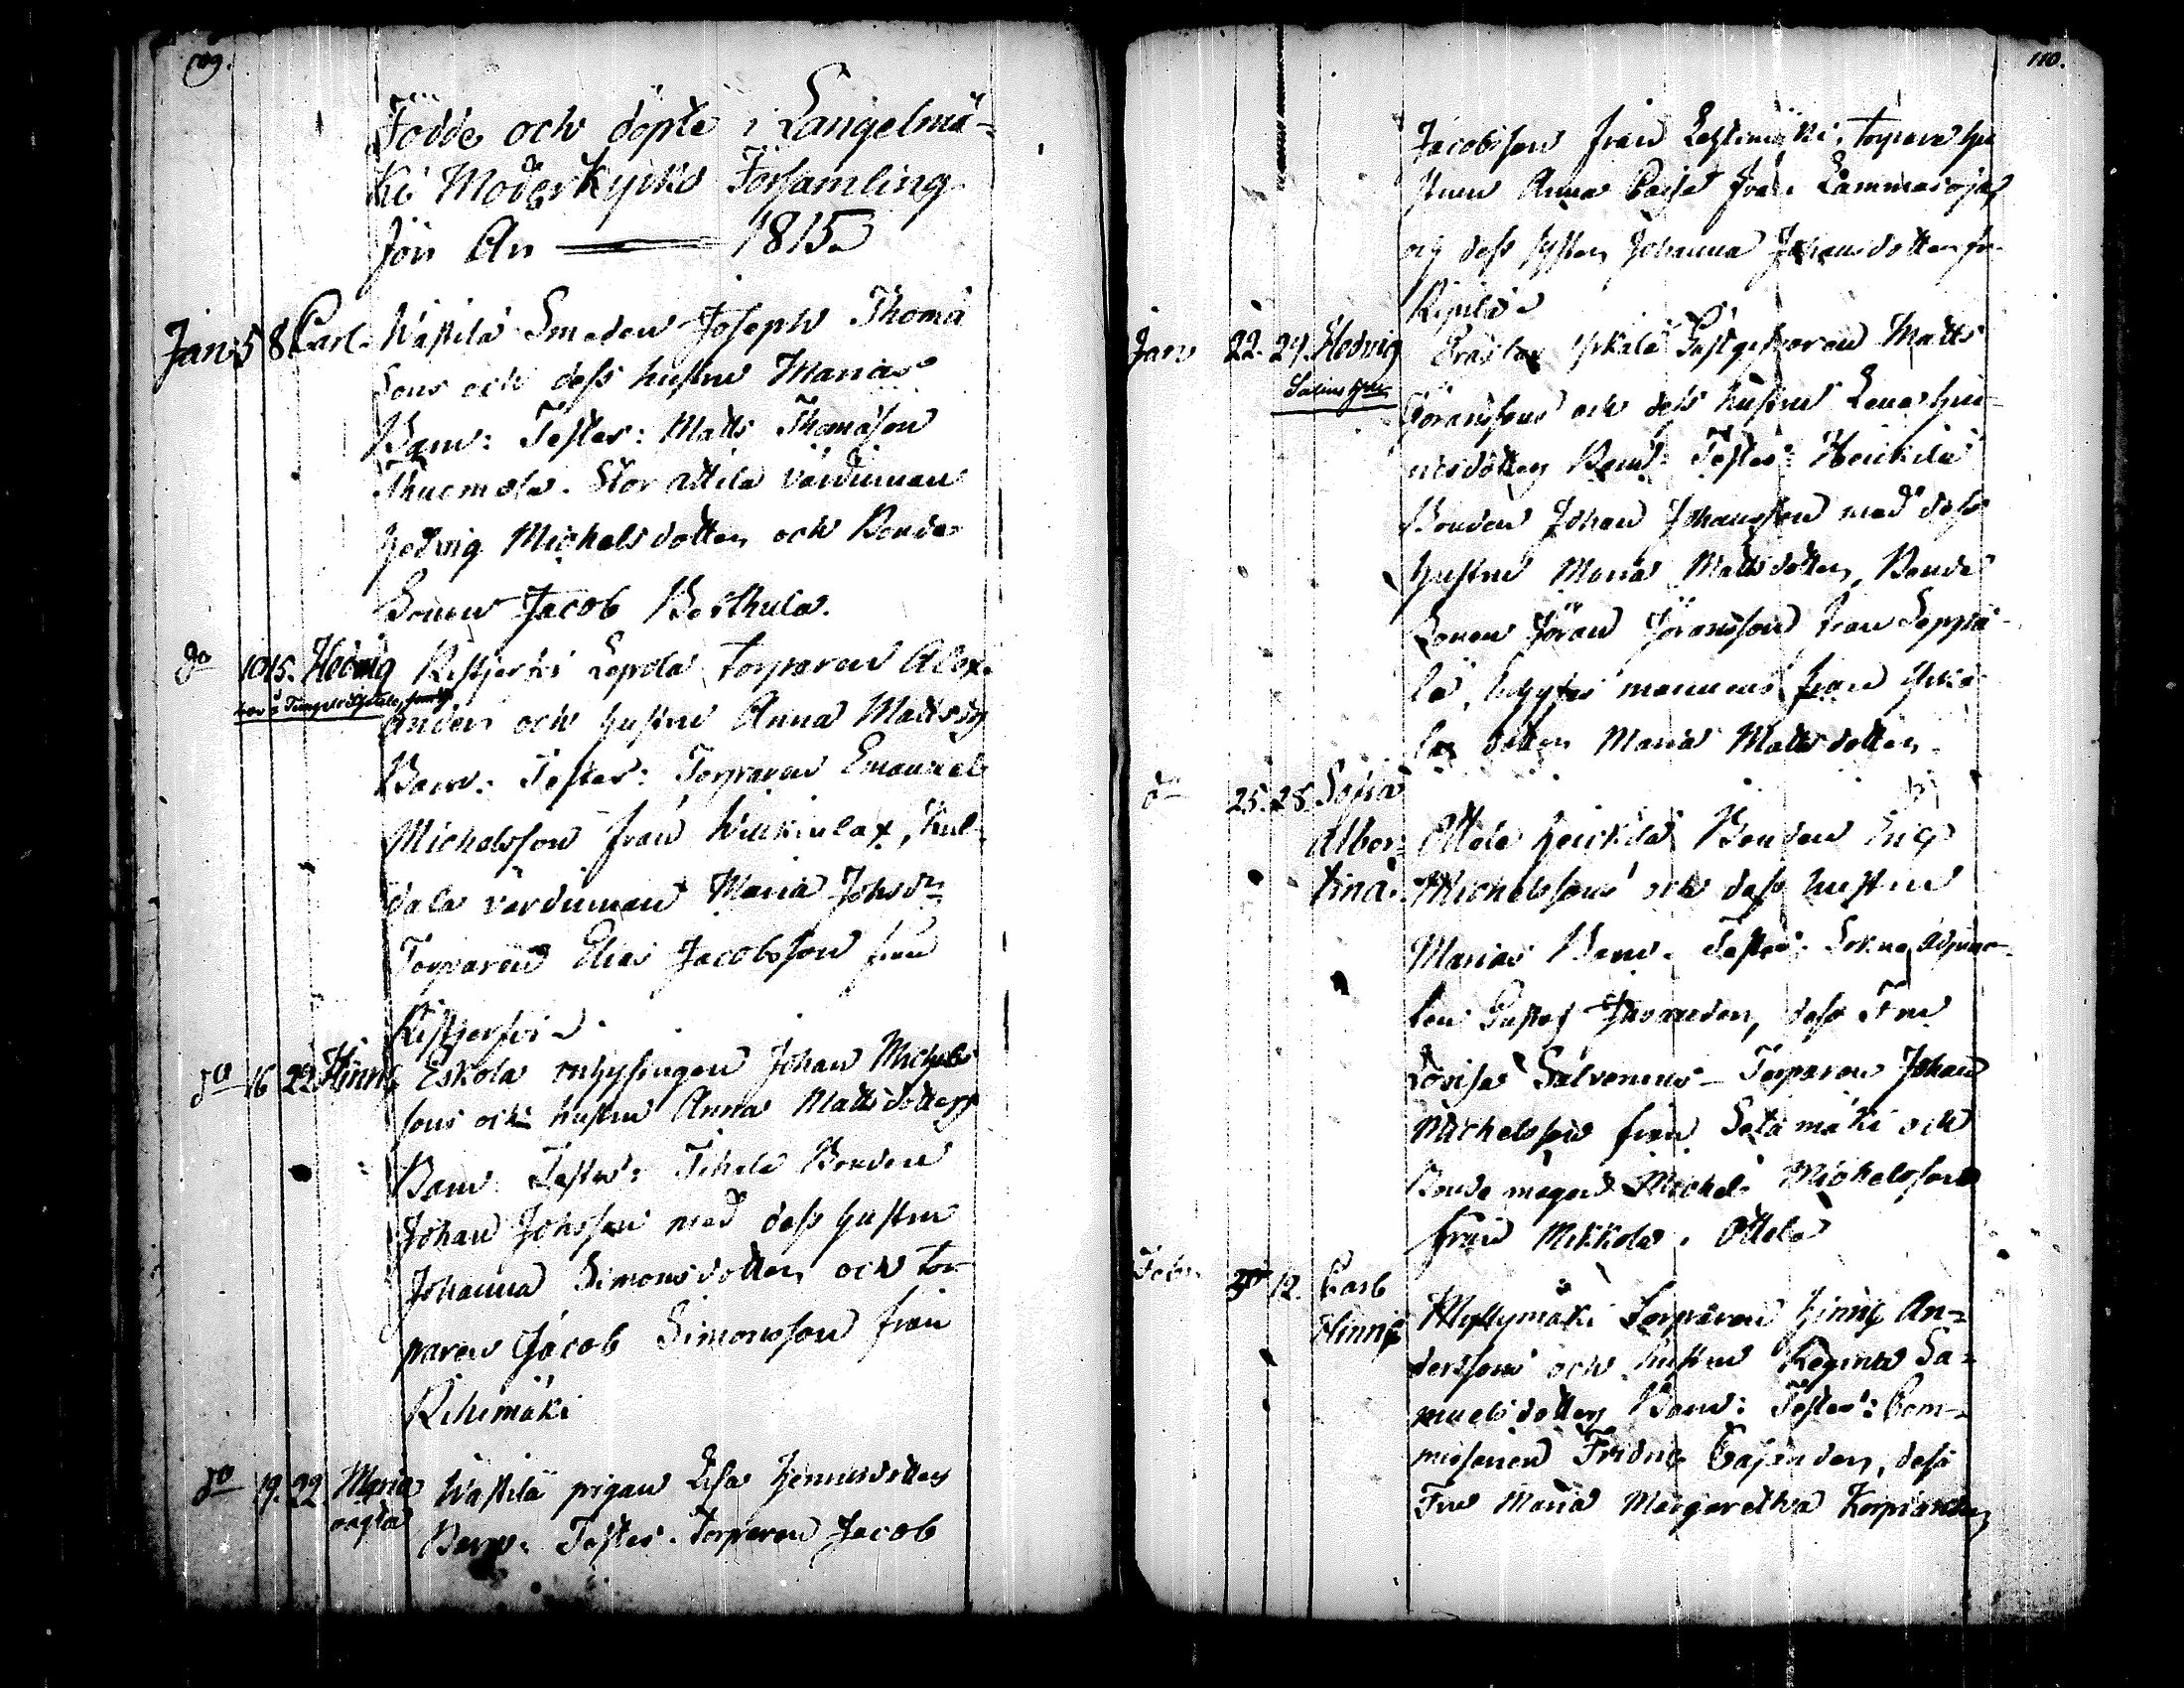 109.
Födde och döpte i Langelmä-
ki Moderkyrko Församling
för An 1815
Jan: 5 8 Carl. Wästilä Smeden Joseph Thomæ
Sons och dess hustru Marias
Barn: Testes: Matts Thomasson
Thuomola. Stor Attila värdinnan
Hedvig Michelsdotter och Bonde
Sonen Jacob Berthula.
do 10 15. Hedvig Ristjerfvi Lepola torparen Alex-
anders och hustru Anna Mattsdrs
Barn: Testes: Torparen Emanuel
Michelsson från
dala värdinnan Maria Johsdr
Torparen Elias Jacobsson från
Ristjerfvi
do 16 22 Hinric Eskola inhysingen Johan Michels
sons och hustru Anna Mattsdotters
Barn: Testes: Bonden
Johan Johsson med dess hustru
Johanna Simonsdotter och tor-
paren Jacob Simonsson från
Rihimäki
do 19. 22. Maria oagta Wästilä pigan Lisa Henricsdotters
Barn: Testes: Torparen Jacob
110.
Jacobsson från torpare hu
strun Anna Caisa från Lammasoja
og dess syster Johanna Johansdotter fr.
Jan 22. 29. Hedvig Yrkälä Gästgifvaren Matts
Göranssons och dess hustru Lena Hin-
ricsdotters Barn: Testes: Heickilä
Bonden Johan Johansson med dess
hustru Maria Mattsdotter, Bonde
Sonen Jöran Göransson från Seppä-
lä, från Yrkä-
lä dotter Maria Mattsdotter.
do 25. 28. Sofia
Alber- Attila Heickilä Bonden Eric
tina. Michelssons och dess hustru
Marias Barn: Testes: Sokne Adjunc-
ten Gustaf dess Fru
Lovisa Salvenius - Torparen Johan
Michelsson från Setämäki och
Bonde mågen Michel Michelsson
från Mikkola. Attila
Febr. 12. Carl
Hinric Myllymäki Torparen Hinric An-
derssons och hustru Regina Sa-
muelsdotters Barn: Testes: Com-
missarien Fridric Cajander, dess
Fru Maria Margaretha